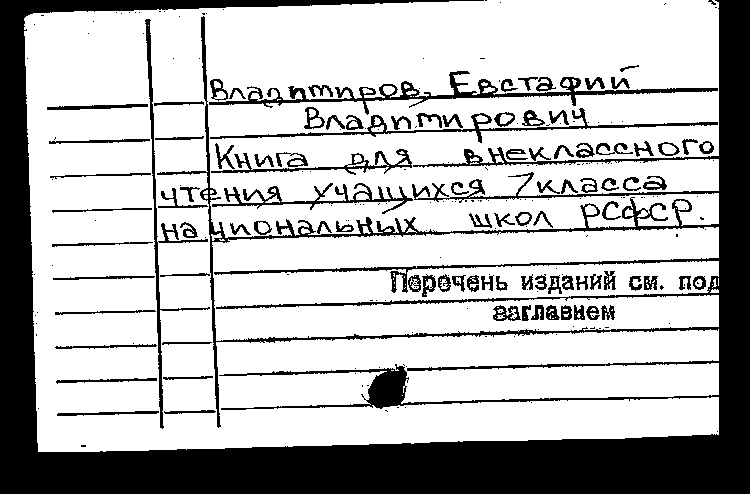 Владимиров, Евстафий
Владимирович
Книга для внеклассного
чтения учащихся 7 класса
национальных школ РСФСР.
Перечень изданий см. под
заглавием